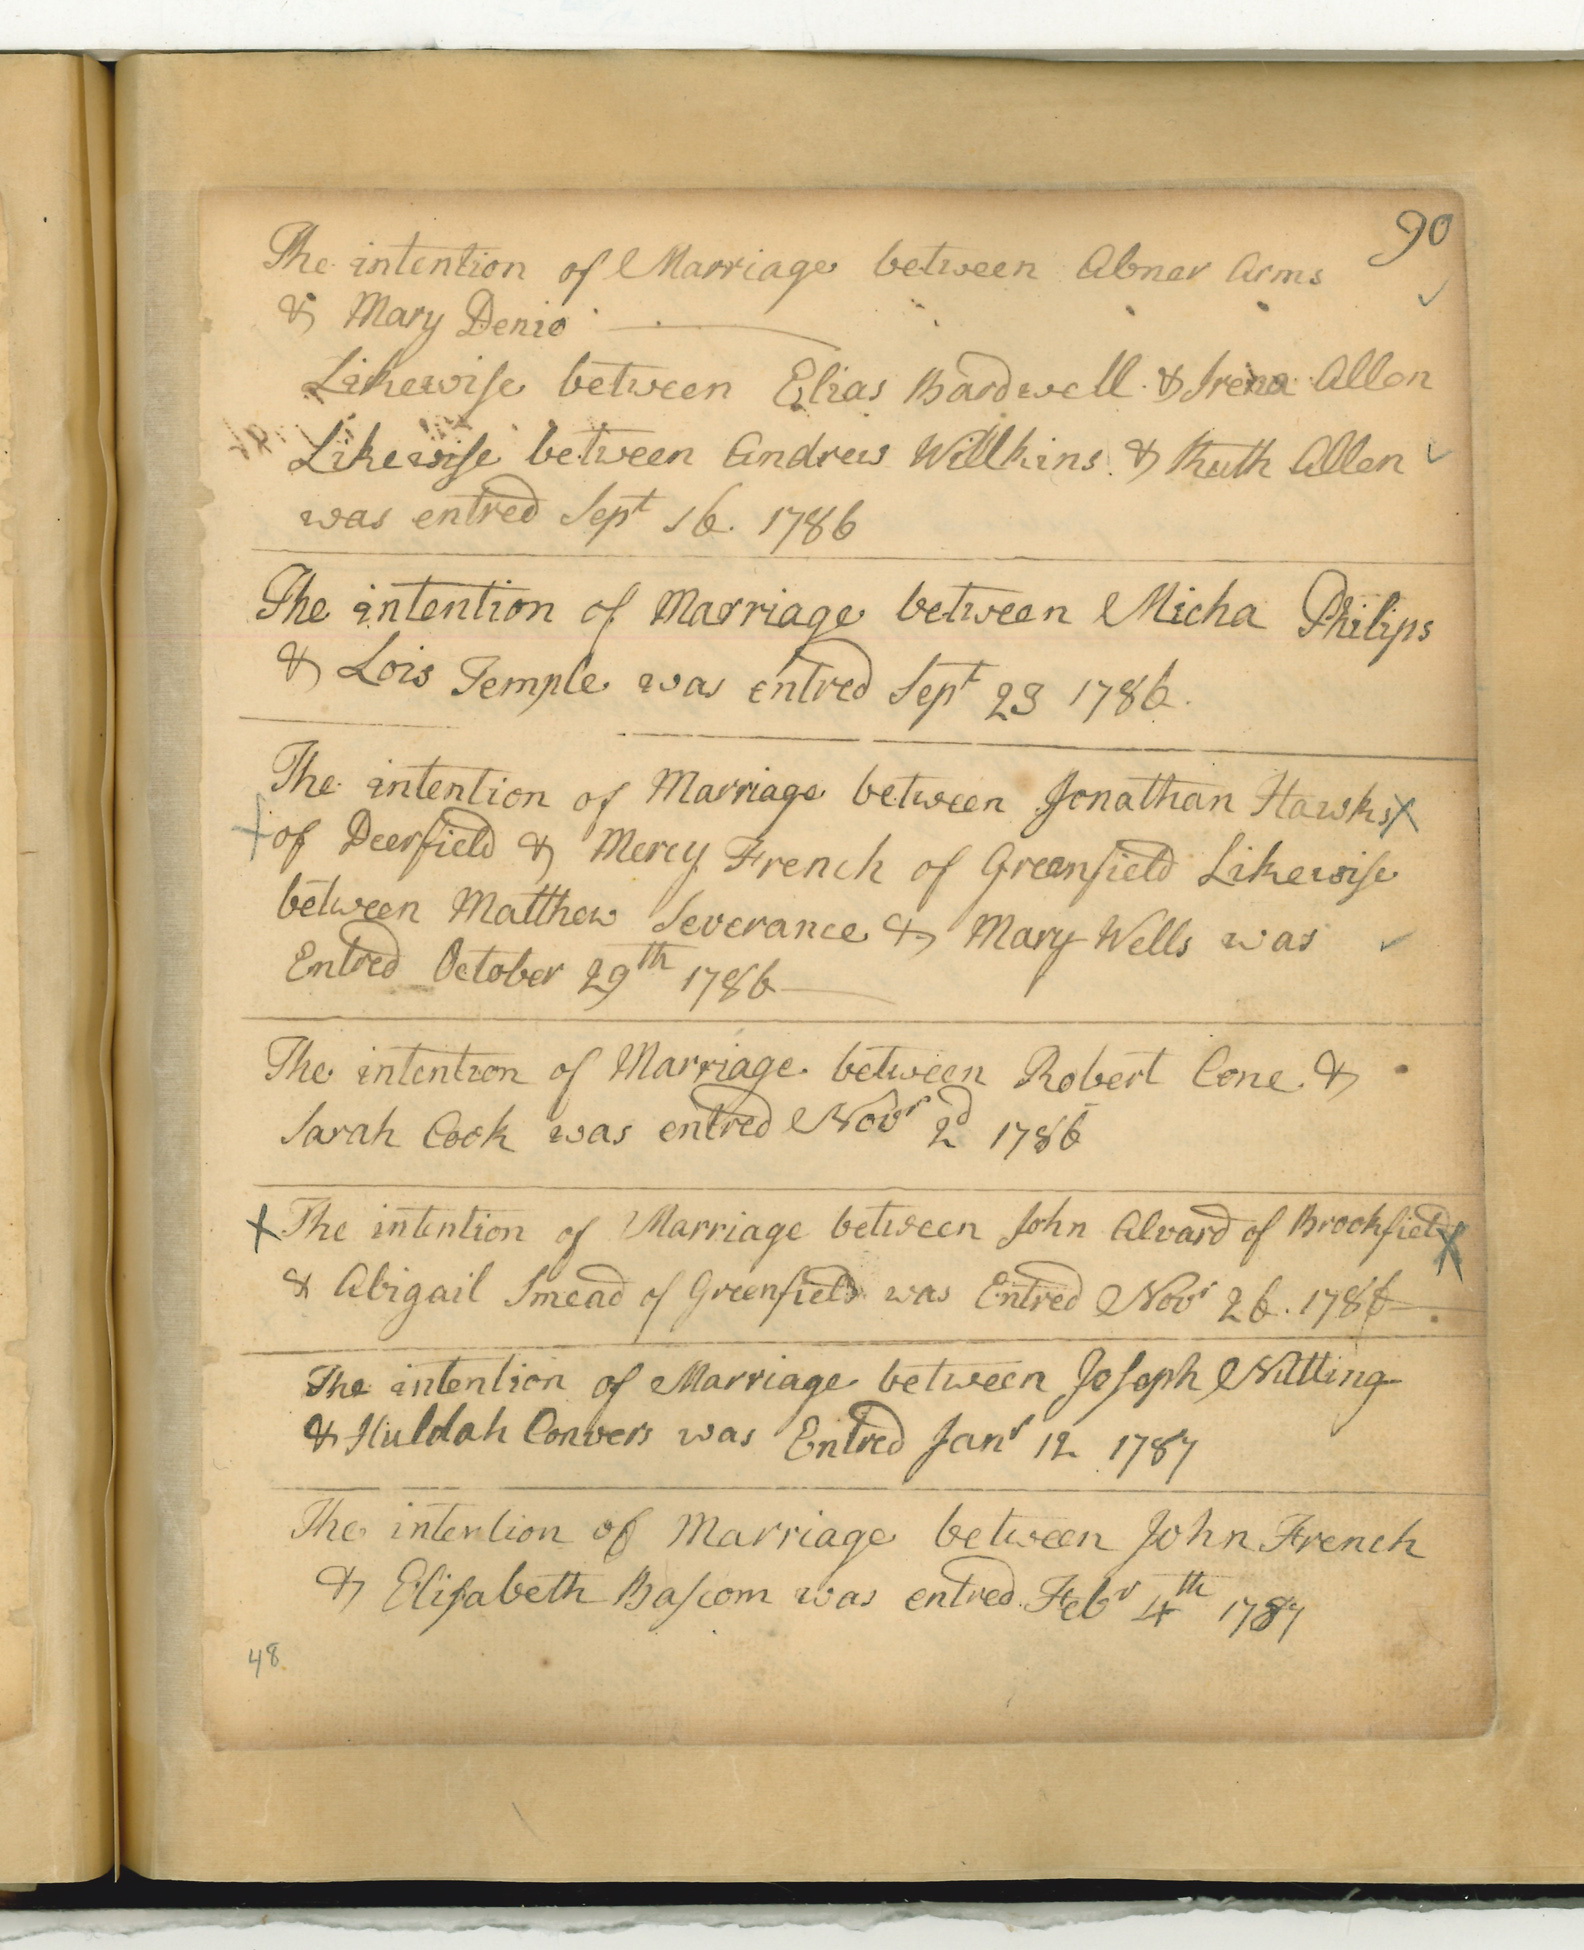 90
The intention of Marriage between Abner Arms
& Mary Denio
Likewise between Elias Bardwell & Irena Allen
Likewise between Andrew Willkins & Ruth Allen
was entred Sept 16. 1786
The intention of Marriage between Micha Philips
& Lois Temple was entred Sept 23 1786.
The intention of Marriage between Jonathan Hawks
of Deerfield & Mercy French of Greenfield Likewise
between Matthew Severance & Mary Wells was
Entred October 29th 1786
The intention of Marriage between Robert Cone &
Sarah Cook was entred Novr 2d 1786
The intention of Marriage between John Alvard of Brookfield
& Abigail Smead of Greenfield was Entred Novr 26. 1786
The intention of Marriage between Joseph Nutting
& Huldah Convers was Entred Janr 12 1787
The intention of Marriage between John French
& Elisabeth Bascom was entred Febr 4th 1787
48